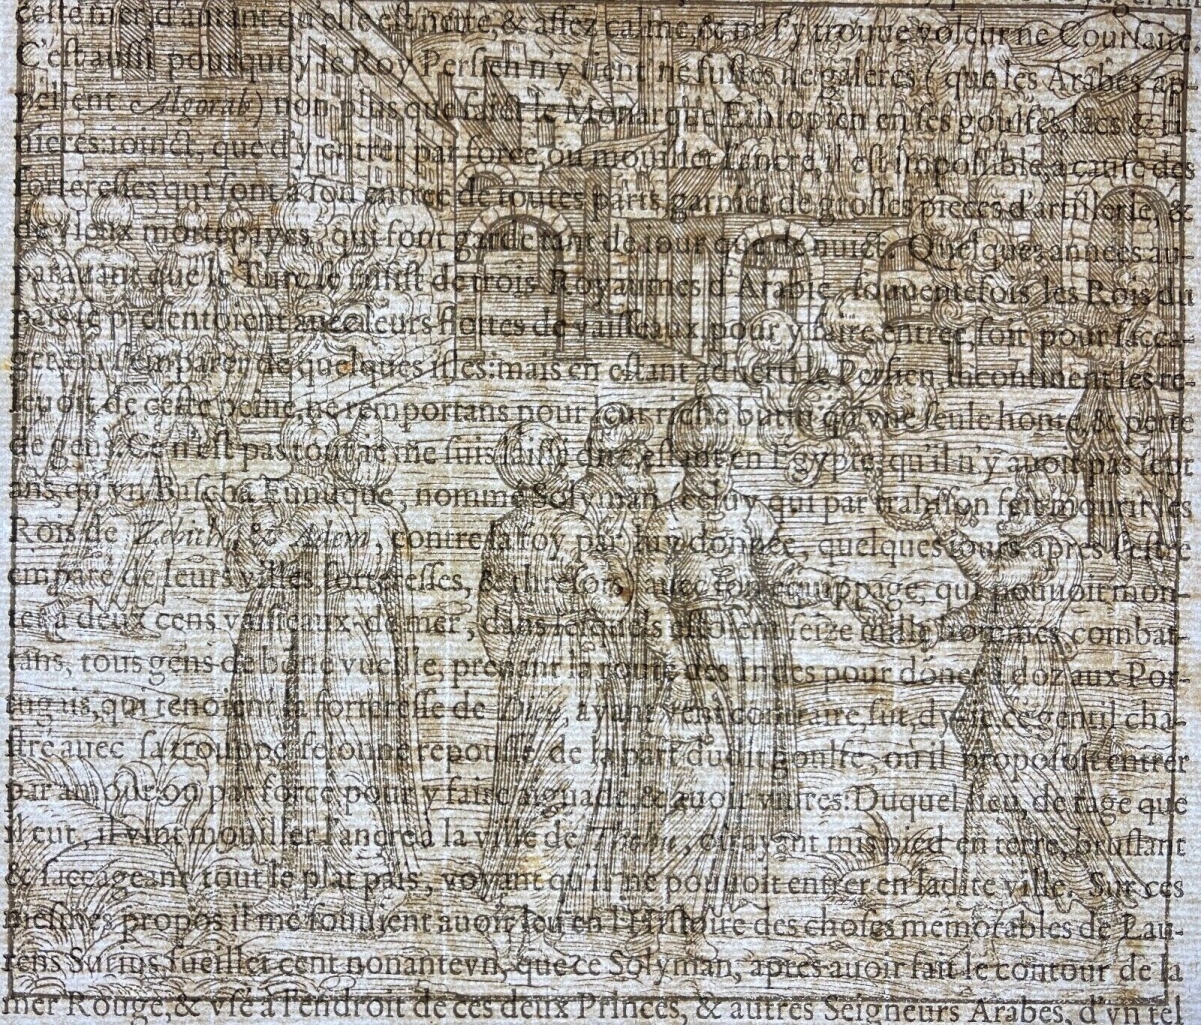 ceste mer, d'autant qu'elle est nette, & assez calme, & ne s'y trouue voleur ne Coursaire
C'est aussi pourquoy le Roy Persien n'y tient ne fustes ne galeres ( que les Arabes ap-
pellent Algorab) non plus que le Monarque Ethiopien en ses goulfes, lacs & ri-
uieres: ioinct, que d'y entrer par force, ou mouiller l'encre, il est impossible, à cause des
forteresses qui sont à son entree de toutes parts, garnies de grosses pieces d'artillerie, &
de vieux mortepayes, qui font garde tant de iour que de nuict. Quelques annees au-
parauant que le Turc se saisist de trois Royaumes d'Arabie, souuentefois les Rois du
païs se presentoient auec leurs flottes de vaisseaux pour y faire entree, soit pour sacca-
ger, ou s'emparer de quelques isles: mais en estant aduerti le Persien, incontinent les re-
de ceste peine, ne remportans pour leur riche butin qu'vne seule honte, & perte
de gens. Ce n'est pas tout: ie me suis laissé dire, estant en Egypte, qu'il n'y auoit pas sept
ans, qu'vn Bascha Eunuque, nommé Solyman, celuy qui par trahison feit mourir les
Rois de Zebith, & Adem, contre la foy par luy donnee, quelques iours apres s'estre
emparé de leurs villes, forteresses, & thresors, auec son equippage, qui pouuoit mon-
ter à deux cens vaisseaux de mer, dans lesquels estoient seize mille hommes combat-
tans, tous gens de bonne vueille, prenant la route des Indes pour donner à doz aux Por-
tugais, qui tenoient la forteresse de Diu, ayant vent contraire, fut, dy-ie, ce gentil cha-
stré auec sa trouppe felonne repoussé de la part dudit goulfe, où il proposoit entrer
par amour ou par force, pour y faire aiguade, & auoir viures: Duquel lieu, de rage que
il eut, il vint mouiller l'ancre à la ville de, & ayant mis pied en terre, bruslant
& saccageant tout le plat païs, voyant qu'il ne pouuoit entrer en ladite ville. Sur ces
mesmes propos il me souuient auoir leu en l'Histoire des choses memorables de Lau-
rens Surius, fueillet cent nonantevn, que ce Solyman, apres auoir fait le contour de la
mer Rouge, & vsé à l'endroit de ces deux Princes, & autres Seigneurs Arabes, d'vn tel